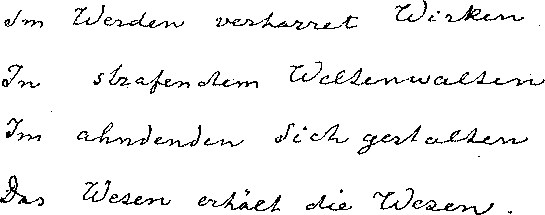 Im Werden verharret Wirken
In strafendem Weltenwalten
Im ahndenden Sich gestalten
Das Wesen erhält die Wesen.